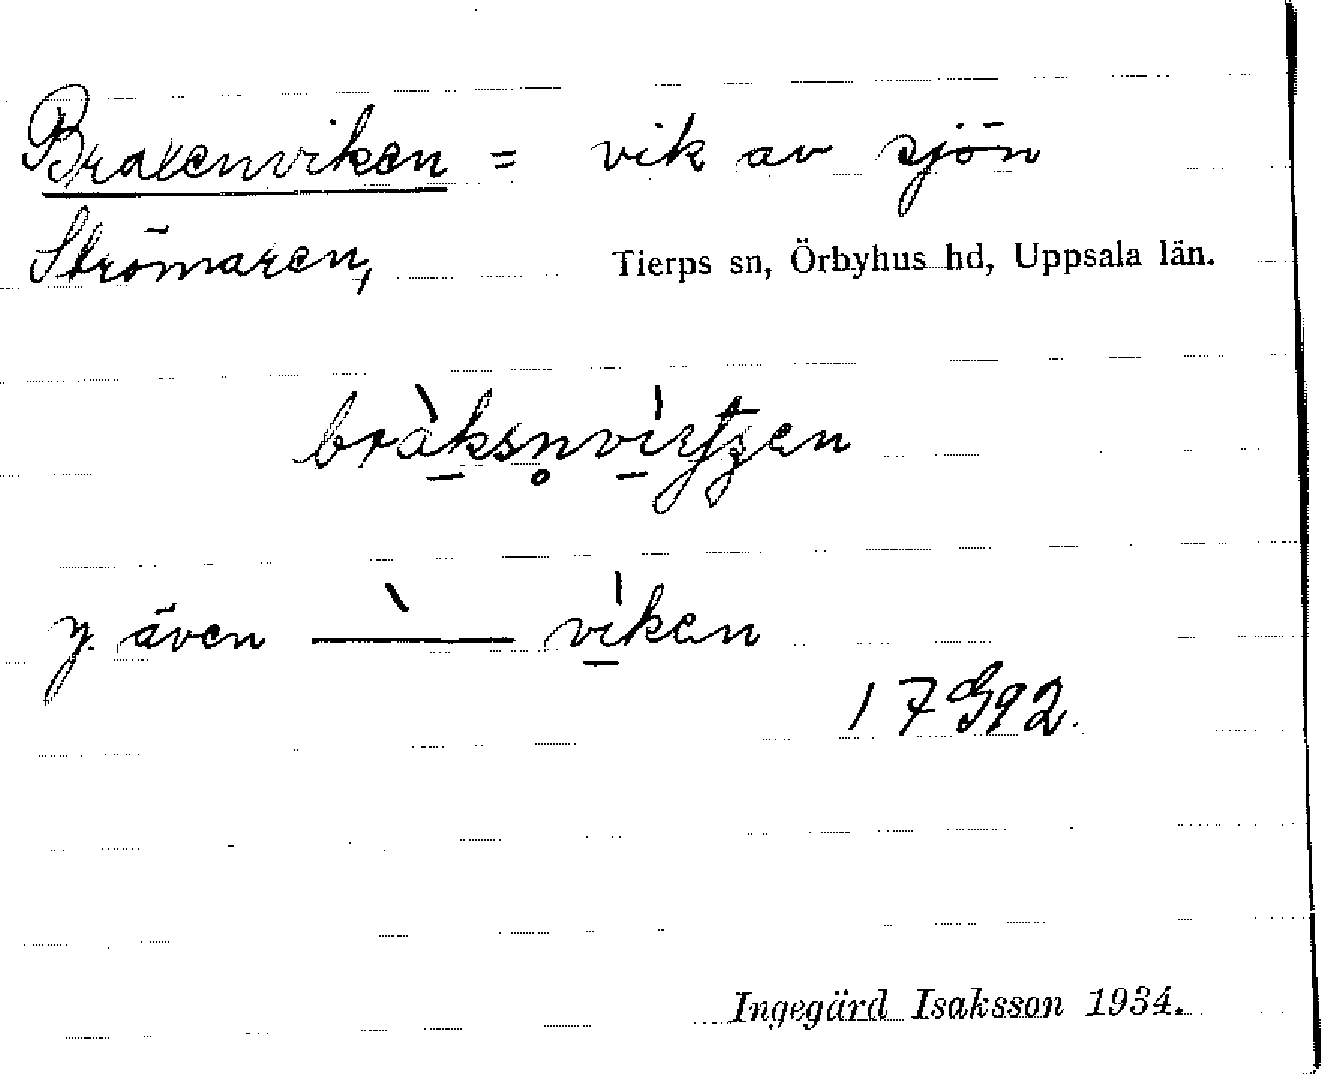 Braxenviken = vik av sjön
Strömaren, Tierps sn, Örbyhus hd, Uppsala län.
y. även ——— viken
17G92.
Ingegärd Isaksson 1934.